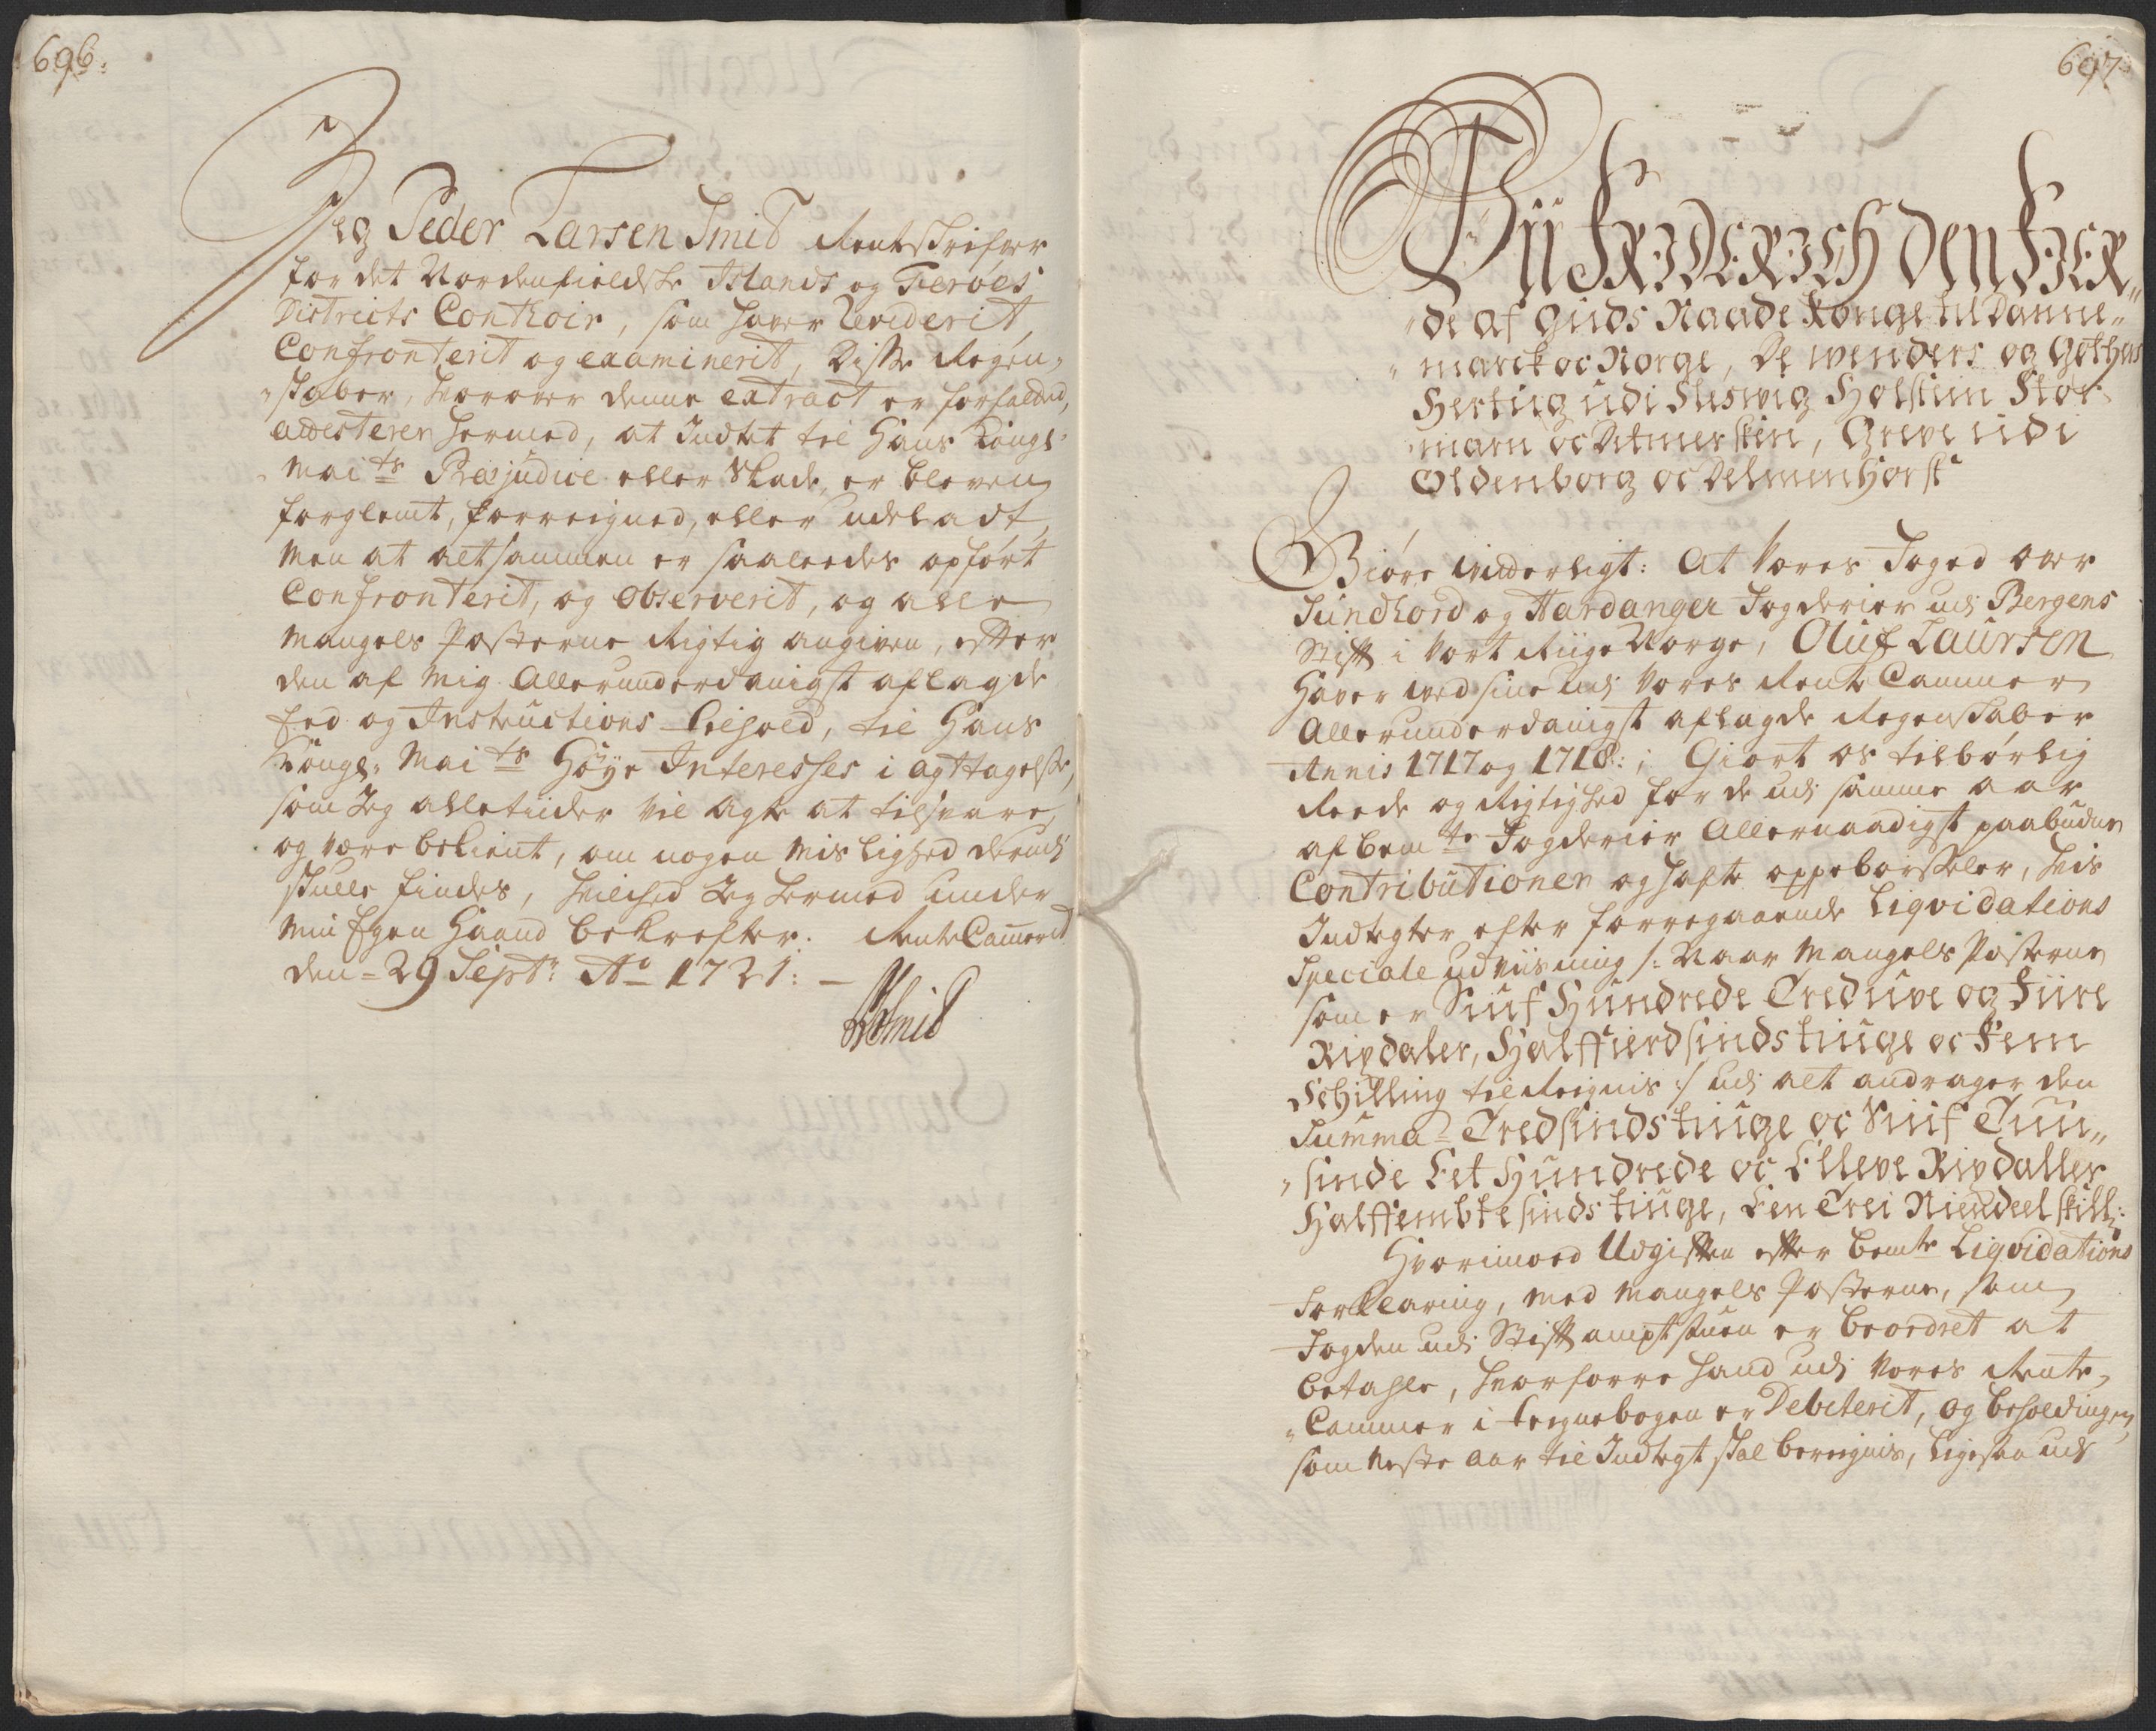 696.
Jeg Peder Larsen Smid Rentskrifver
for det Nordenfieldske Islands og Færöes
Districts Conthoir, som haver Reviderit,
Confronterit og examinerit, Disse Regen-
skaber, hvorover denne extract er forfatted,
attesterer hermed, at Indtet til Hans Kongl:
Maits Præjudice eller Skade, er bleven
forglemt, forreigned, eller udeladt,
Men at altsammen er saaleedes opfört
Confronterit, og observerit, og alle
Mangels Posterne Rigtig angiven, efter
den af Mig Allerunderdanigst aflagde
Eed og Instructions Lidhold, til Hans
Kongl. Maits Höye Interesses i agttagelse,
som Jeg alletiider vil agte at tilsvare,
og være bekient, om nogen Mislighed derudi
skulle findes, hvilched Jeg hermed under
Min Egen Haand bekrefter. Rente Cammerit
den 29 Septr: Ao 1721: —
PLSmid
697
Vii FRIDERICH DEN FIER„
„de af Guds Naade Konge til Danne„
„marck oc Norge, De Wenders og Gothers
Hertug udi Slesvig Holsten Stor„
„marn oc Ditmersken, Greve udi
Oldenborg oc Delmenhorst
Giöre Witterligt: At Vores Foged over
Sundhord og Hardanger Fogderier udi Bergens
Stift i Vort Riige Norge, Oluf Laursen
Haver ved sine udi Vores Rente Cammer
Allerunderdanigst aflagde Regenskaber
Annis 1717 og 1718:, Giort os tilbörlig
Reede og Rigtighed for de udi samme aar
af bemte Fogderier Allernaadigst paabudne
Contributioner og hafte oppeborseler, hvis
Indtegter efter forregaaende Liqvidations
Speciale udviisning /: Naar Mangels Posterne
som er Siuf Hundrede Treduve og Fiire
Rixdaler, Halffierdsindstiuge oc Fem
Schilling til Reignis :/ udi alt andrager den
Summa = Tredsindstiuge oc Siuf Tuu„
„sinde Eet Hundrede oc Elleve Rixdaller
Halffembtesindstiuge, Een Trei Niendeel skill:
Hvorimoed Udgiften efter bemte Liqvidations
Forklaring, med Mangels Posterne, som
Fogden udi Stiftamptstuen er beordret at
betahle, hvorforre hand udi Vores Rente-
„Cammer i Reignebogen er Debiterit, og besoldingen
som Neste aar til Indtegt skal bereignis, ligesaa udi